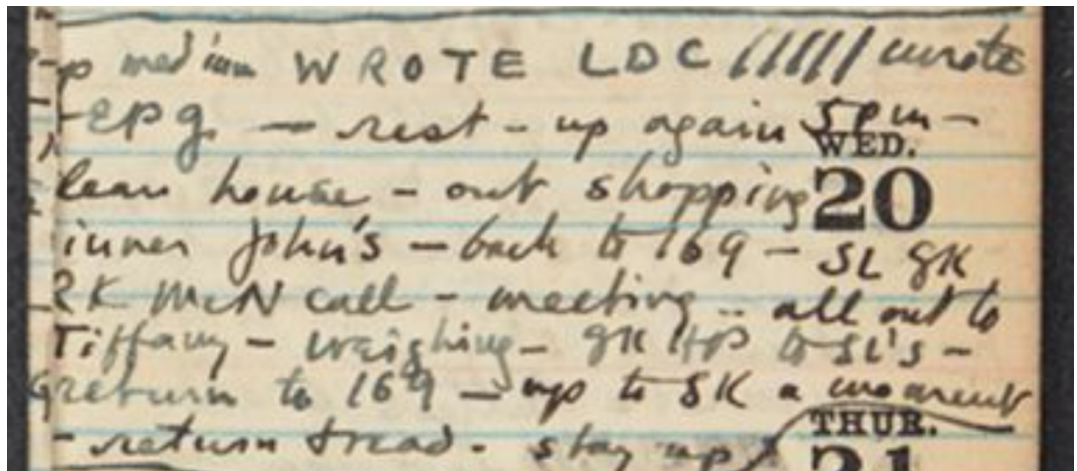 p medium WROTE LDC ////// wrote
epg — rest - up again 5pm -
WED.
lean house - out shopping
20
inner John's — back to 169 - SL GK
RK McN call - meeting .. all out to
Tiffany - weighing - GK to SL's -
return to 169 — up to SK a moment
THUR.
- return tread - stay up
21